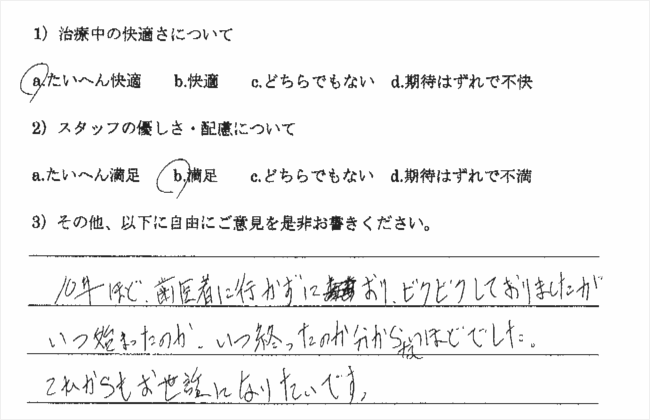 1）治療中の快適さについて
a.たいへん快適　b.快適　c.どちらでもない　d.期待はずれで不快
2）スタッフの優しさ・配慮について
a.たいへん満足　b.満足　c.どちらでもない　d.期待はずれで不満
3）その他、以下に自由にご意見を是非お書きください。
10年ほど、歯医者に行かずにおり、ビクビクしておりましたが
いつ始まったのか、いつ終ったのか分からないほどでした。
これからもお世話になりたいです。